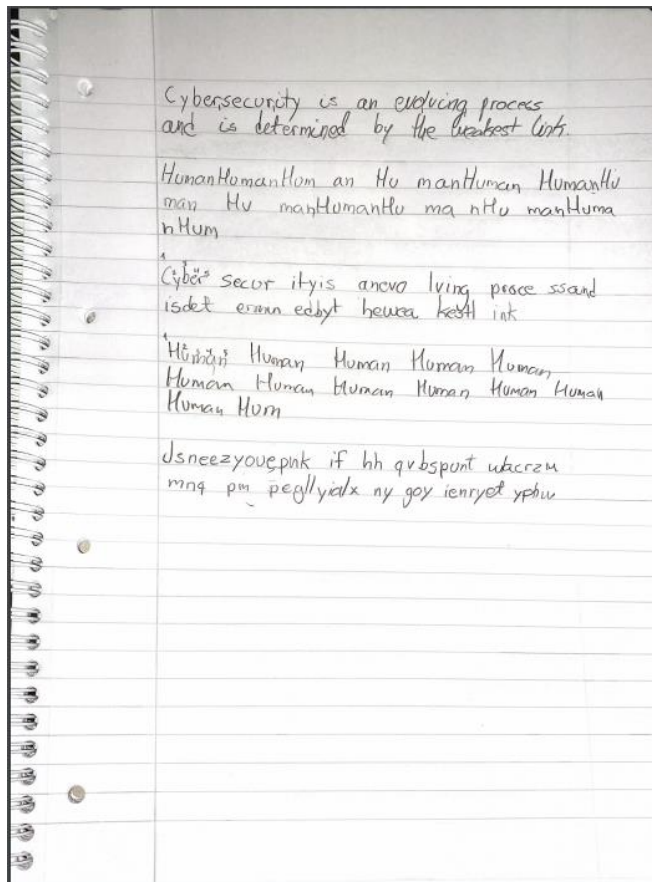 Cybersecurity is an evolving process
and is determined by the weakest link.
HumanHumanHum an Hu manHuman HumanHu
man Hu manHumanHu ma nHu manHuma
nHum
1 2 3 4 5
Cyber secur ityis anevo lving proce ssand
isdet ermin edbyt hewea kestl ink
1 2 3 4 5
Human Human Human Human Human
Human Human Human Human Human Human
Human Hum
Jsneezyouepnk if hh qvbspunt wacrzm
mnq pm pegllyialx ny goy ienryet yphw